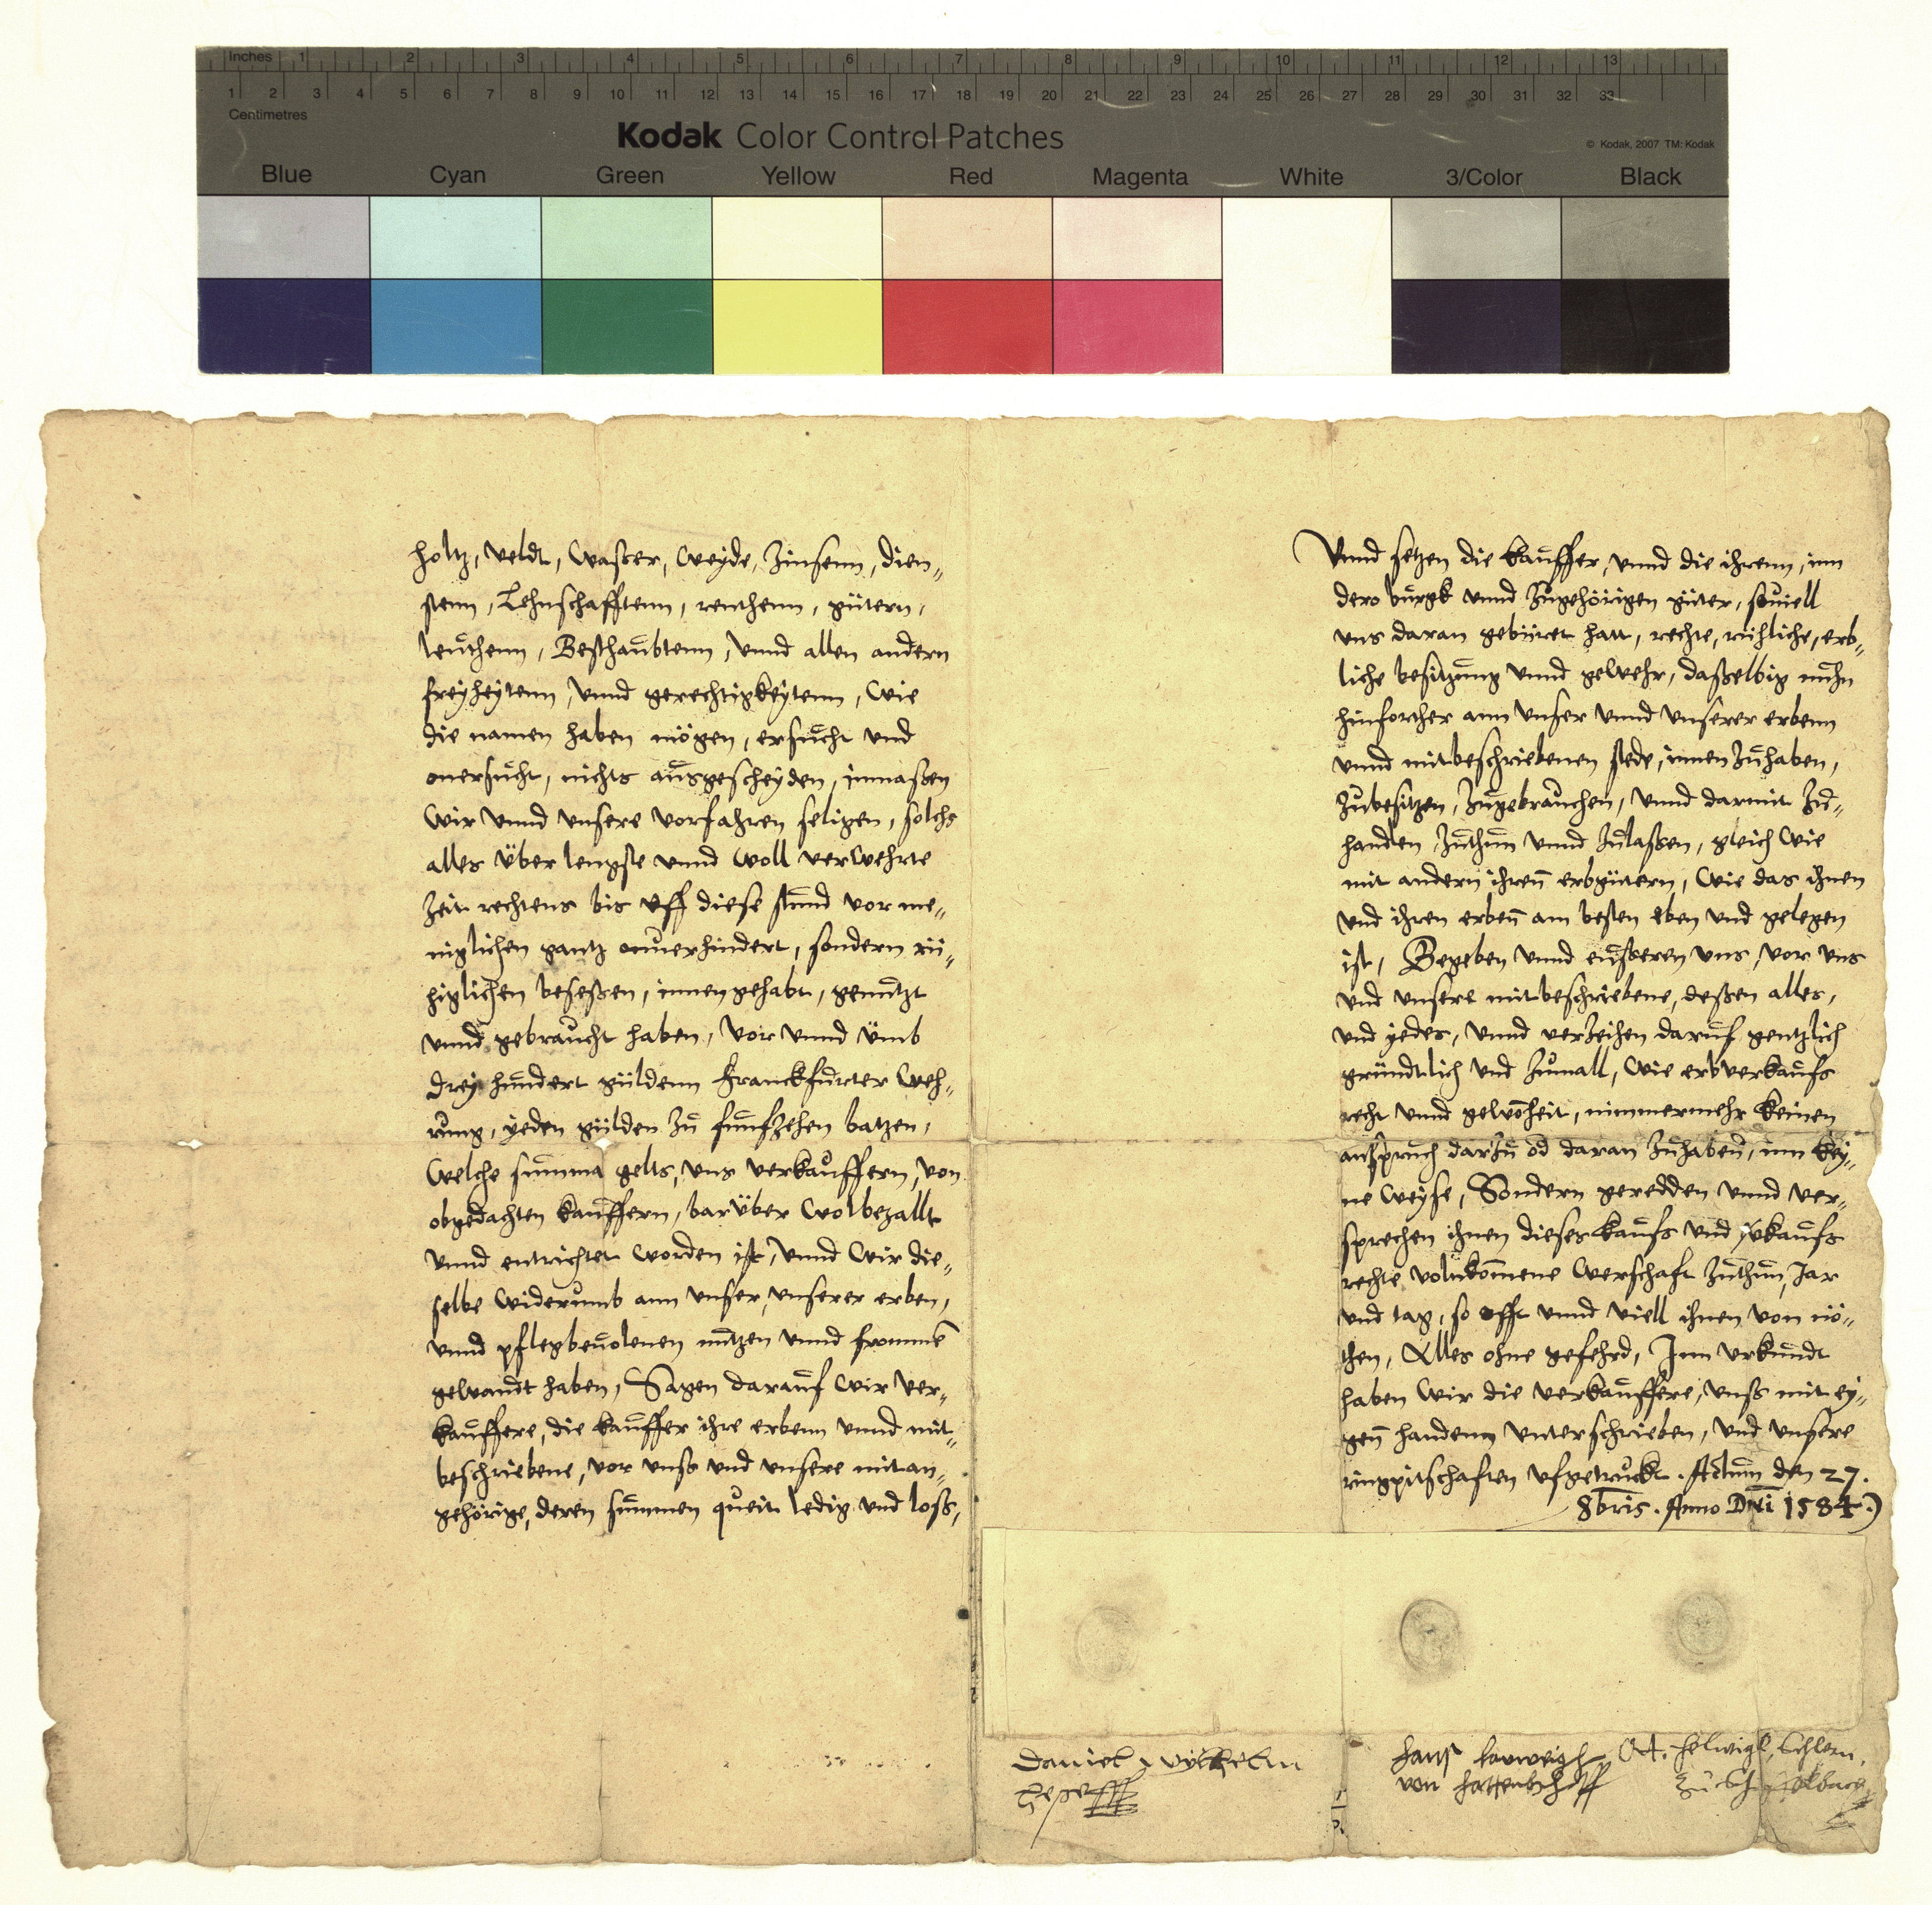 Inches 1 2 3 4 5 6 7 8 9 10 11 12 13
1 2 3 4 5 6 7 8 9 10 11 12 13 14 15 16 17 18 19 20 21 22 23 24 25 26 27 28 29 30 31 32 33
Centimetres
Kodak Color Control Patches
© Kodak, 2007 TM: Kodak
Blue Cyan Green Yellow Red Magenta White 3/Color Black
holtz, veldt, Wasser, Weyde, Zinsenn, dien„
stenn, Lehnschafftenn, renthenn, gütern,
leuthenn, Besthaubtenn, vnnd allen andern
freyheytenn, vnnd gerechtigkeytenn, Wie
die namen haben mögen, ersucht vnd
onersucht, nichts ausgescheyden, inmaßen
Wir vnnd vnsere vorfahren seligen, solchs
alles über lengste vnnd Woll verWehrte
Zeit rechtens bis vff diese stund vor me„
niglichen gantz onuerhindert, sondern rü„
higlichen beseßen, innengehabt, genutzt
vnnd gebraucht haben, Vor vnnd ümb
drey hundert gülden Franckfurter Weh„
rung, yeden gülden Zu funfzehen batzen,
Welche summa gelts, vns verkauffern, von
obgedachten kauffern, barüber Wolbezallt
vnnd entrichtet Worden ist, vnnd Wir die„
selbe Widerumb ann vnser, vnserer erben,
vnnd pflegbeuolenen nutzen vnnd frommē
geWandt haben, Sagen darauf Wir Ver„
kauffere, die kauffer ihre erbenn vnnd mit„
beschriebene, vor vnß vnd vnsere mitan„
gehörige, deren summen queit ledig vnd loß,
Vnnd setzen die kauffer, vnnd die ihrenn, inn
dero burgk vnnd Zugehörigen güter, souiell
vns daran gebüret hatt, rechte, rühliche, erb„
liche besitzung vnnd geWehr, daßelbig nuhn
hinforther ann vnser vnnd vnserer erbenn
vnnd mitbeschriebenen stede, innen Zuhaben,
Zubesitzen, Zugebrauchen, vnnd darmit Zu„
handlen Zuthun vnnd Zulaßen, gleich Wie
mit andern ihren̄ erbgütern, Wie das ihnen
vnd ihren erben̄ am besten eben vnd gelegen
ist, Begeben vnnd eußeren vns, vor vns
vnd vnsere mitbeschriebene, deßen alles,
vnd yedes, vnnd verzeihen daruf gentzlich
gründtlich vnd Zumall, Wie erbverkaufs
recht vnnd geWonheit, nimmermehr keinen
anspruch darzu od daran Zuhaben̄, inn key„
ne Weyse, Sondern geredden vnnd ver„
sprechen ihnen dieses kaufs vnd vkaufs
rechte volnkom̄ene Werschaft Zuthun, Jar
vnd tag, so offt vnnd viell ihnen von nö„
then, Alles ohne gefehrd, Jnn vrkundt
haben Wir die verkauffere, vnß mit ey„
gen̄ handenn vnterschrieben, vnd vnsere
ringpitschaften vfgetruckt. Actum den 27.
8bris. Anno Dni 1584.
Daniel Wylhelm
Hans
von